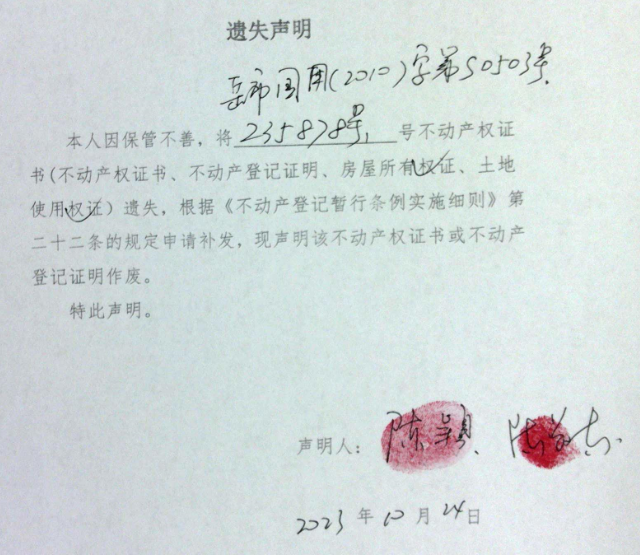 遗失声明
岳市国用(2010)字第S0503号、
本人因保管不善，将 235878号、 号不动产权证
书(不动产权证书、不动产登记证明、房屋所有权证、土地
使用权证）遗失，根据《不动产登记暂行条例实施细则》第
二十二条的规定申请补发，现声明该不动产权证书或不动产
登记证明作废。
特此声明。
声明人：陈颖、
2023 年 10 月 24 日